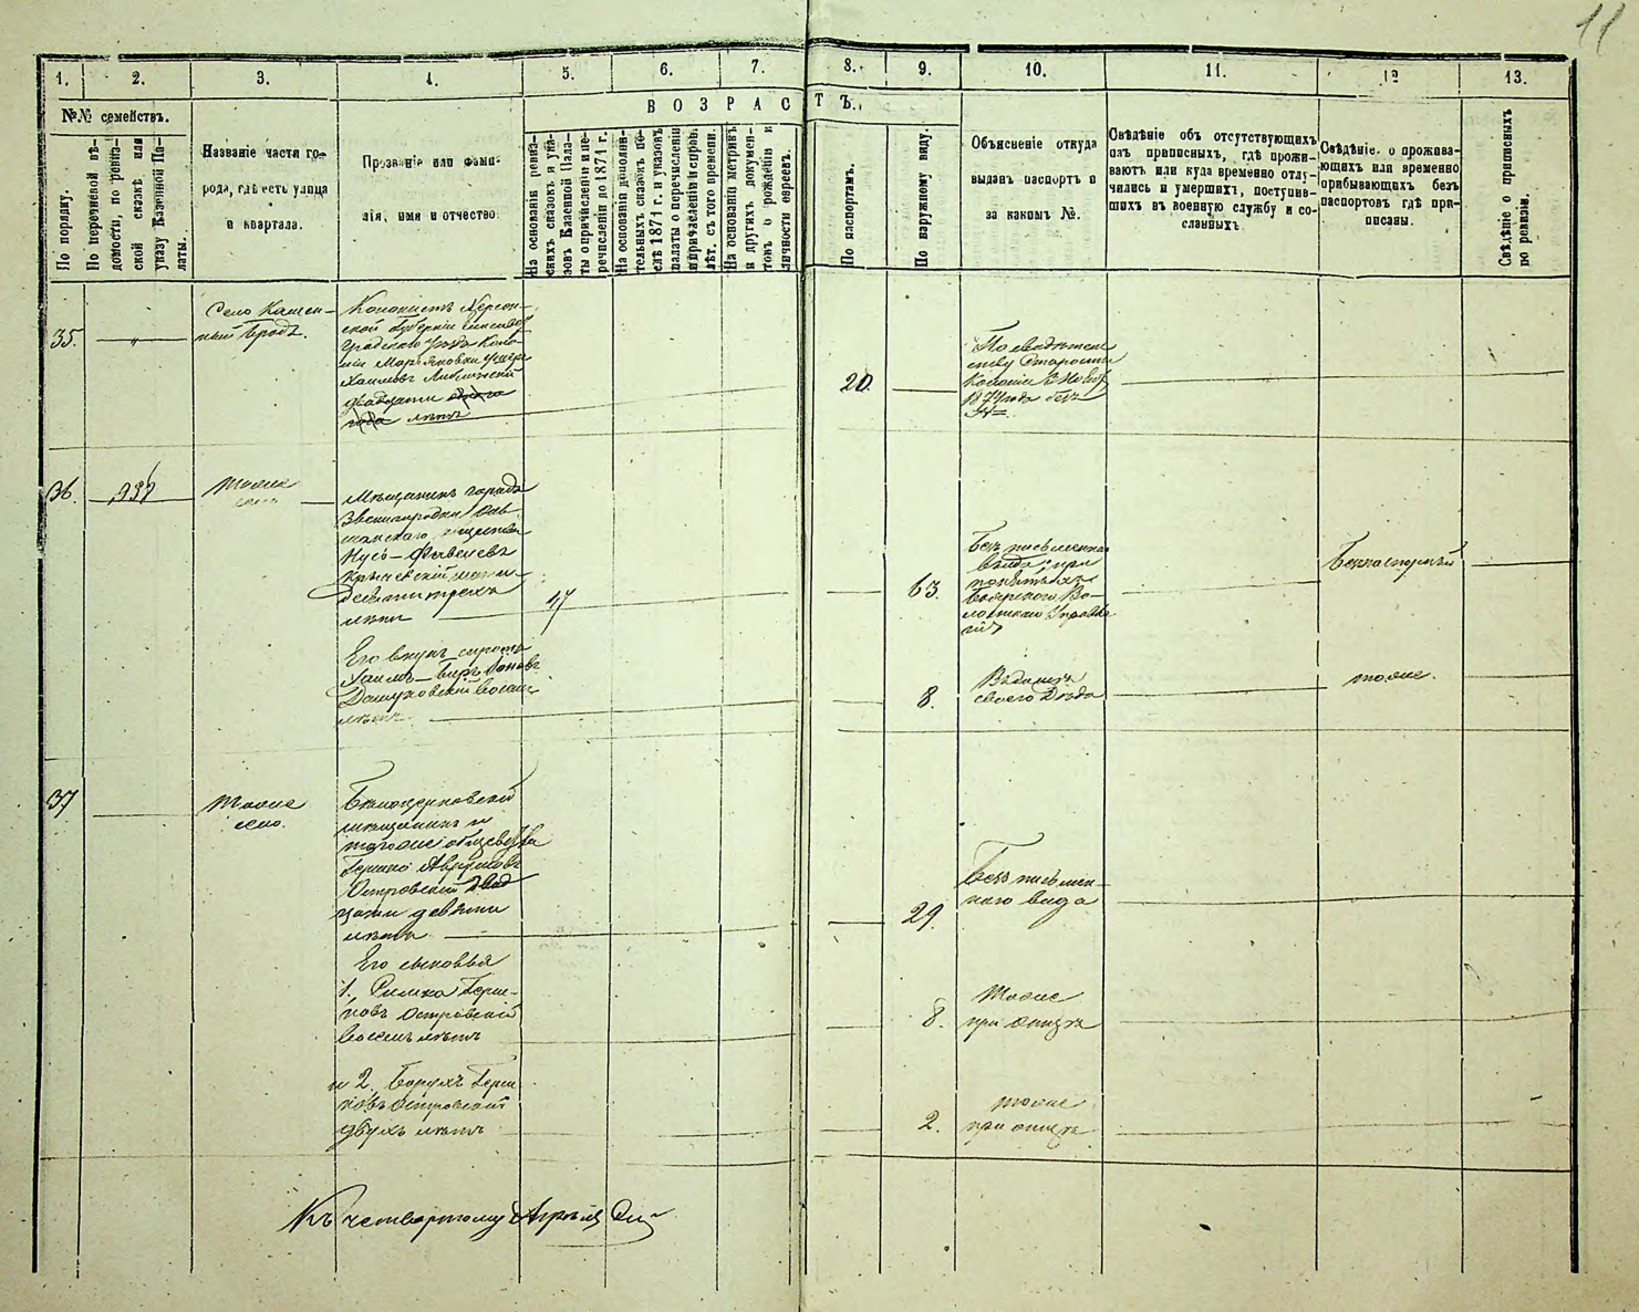 11
1.
2.
3.
4.
5.
6.
7.
8.
9.
10.
11.
12
13.
№№ семействъ.
ВОЗРАСТЪ.
По порядку.
По перечневой вѣ-
домости, по ревиз-
ской сказкѣ или
указу Казенной Па-
латы.
Названіе части го-
рода, гдѣ есть улица
и квартала.
Прозваніе или фами-
лія, имя и отчество
На основаніи ревиз-
скихъ сказокъ и ука-
зовъ Казенной Пала-
ты о причисленіи и пе-
речисленіи до 1871 г.
На основаніи дополни-
тельныхъ сказокъ по-
слѣ 1871 г. и указовъ
палаты о перечисленіи
и причисленіи и справ.
лѣт. съ того времени.
На основаніи метрикъ
и другихъ докумен-
товъ о рожденіи и
личности евреевъ.
По паспортамъ.
По наружному виду.
Объясненіе откуда
выданъ паспортъ и
за какимъ №.
Свѣдѣніе объ отсутствующихъ
изъ приписныхъ, гдѣ прожи-
ваютъ или куда временно отлу-
чились и умершихъ, поступив-
шихъ въ военную службу и со-
сланныхъ
Свѣдѣніе о прожива-
ющихъ или временно
прибывающихъ безъ
паспортовъ гдѣ при-
писаны.
Свѣдѣніе о приписныхъ
по ревизіи.
35.
Село Камен-
ный Бродъ.
Колонистъ Херсон-
ской Губерніи Елисавет
градскаго уѣзда Коло-
ніи
Хаимовъ
двадцати одного
года лѣтъ
20.
По свидѣтель
ству Старосты
Колоніи
1874 года безъ
№
36.
тоже
село
Мѣщанинъ города
Звенигородки Оль-
шанскаго общества
Нусь-
шести-
десяти трехъ
лѣтъ
47
63.
Безъ письменнаго
вида; при
Боярскаго Во-
лостнаго Правле
нія
Безпаспортный
Его внукъ сирота
Хаимъ-
Дашуковскій восьми
лѣтъ
8.
своего Дѣда
тоже.
37
Тоже
село.
Бѣлоцерковскій
мѣщанинъ и
тогоже общества
Гершко Аврумовъ
Островскій двад
цати девяти
лѣтъ
29.
Безъ письмен-
наго вида
Его сыновья
1. Симха Герш-
ковъ Островскій
восемь лѣтъ
8.
Тоже
при отцѣ
и 2. Борухъ Герш
ковъ Островскій
двухъ лѣтъ
2.
тоже
при отцѣ
Къ четвертому